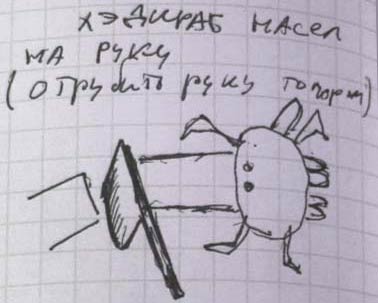 хэдкраб насел
на руку
(отрубить руку топором)